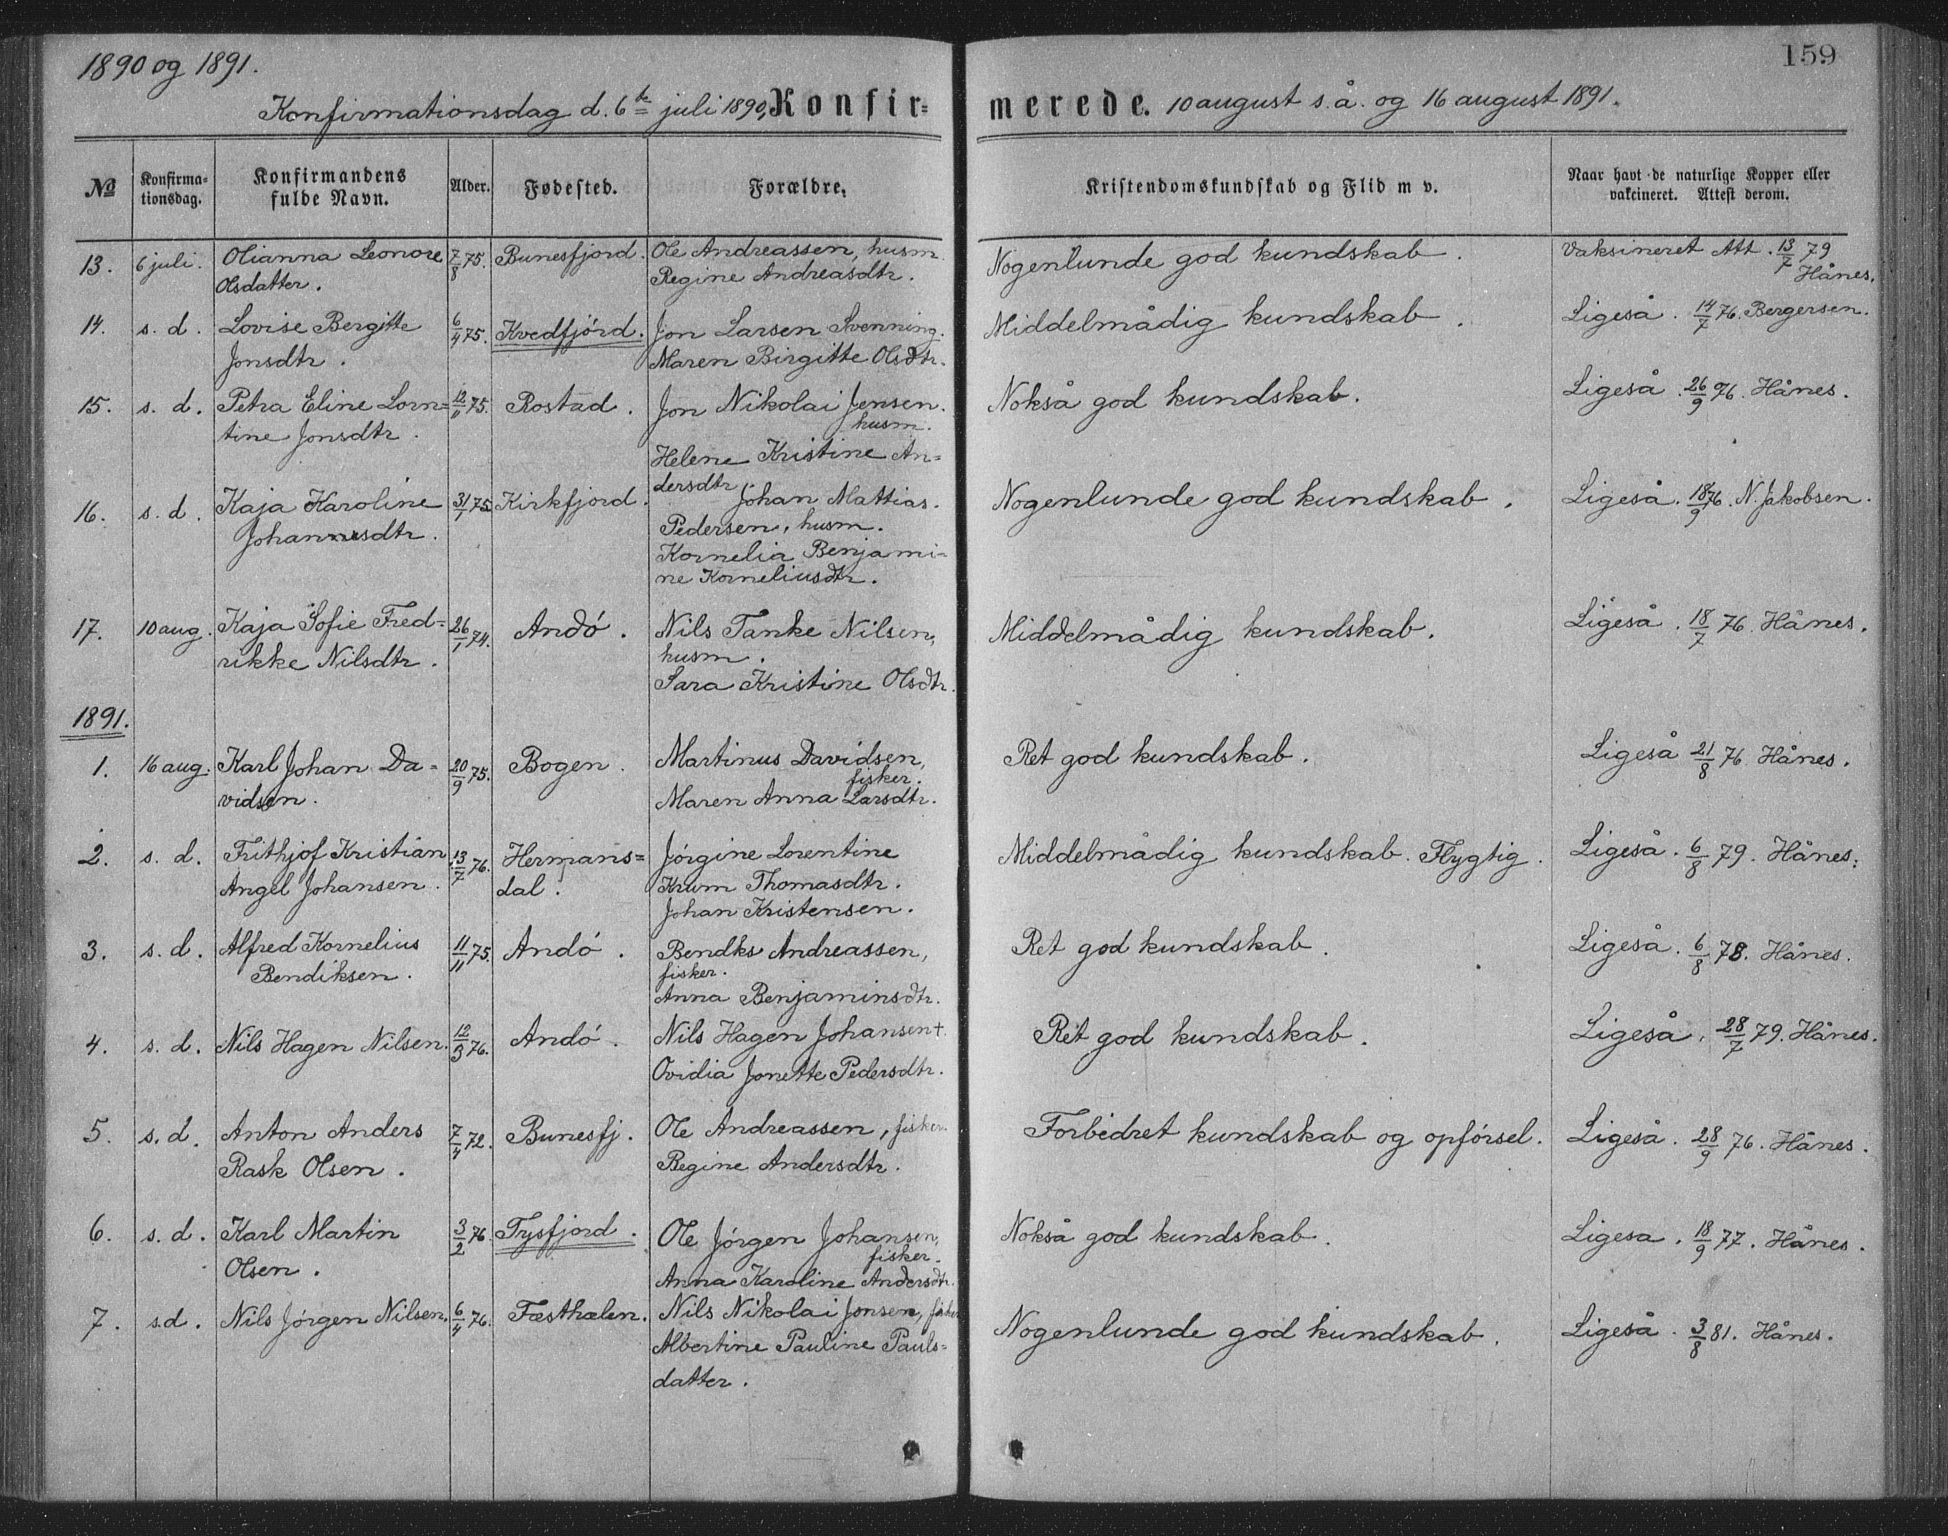 1890 og 1891.
159
Konfirmationsdag d. 6te juli 1890, Konfir=
merede. 10 august s. å. og 16 august 1891.
№ Konfirma-tionsdag. Konfirmandens fulde Navn. Alder. Fødested. Forældre. Kristendomskundskab og Flid m v. Naar havt de naturlige Kopper eller vakcineret. Attest derom.
13. 6 juli. Olianna Leonore 7/8 75. Bunesfjord. Ole Andreassen, husm. Nogenlunde god kundskab. Vaksineret Att. 13/7 79
Olsdatter. Regine Andreasdtr. Hånes.
14. s. d. Lovise Bergitte 6/4 75. Kvedfjórd. Jon Larsen Svenning. Middelmådig kundskab. Ligeså. 14/7 76. Bergersen.
Jonsdtr. Maren Birgitte Olsdtr.
15. s. d. Petra Eline Lorn= 12/11 75. Rostad. Jon Nikolai Jensen. Nokså god kundskab. Ligeså. 26/9 76. Hånes.
tine Jonsdtr. husm.
Helene Kristine An=
dersdtr
16. s. d. Kaja Karoline 31/1 75. Kirkfjord. Johan Mattias. Nogenlunde god kundskab. Ligeså. 18/9 76. N. Jakobsen.
Johannesdtr. Pedersen, husm.
Kornelia Benjami=
ne Korneliusdtr.
17. 10 aug. Kaja Sofie Fred= 26/1 74. Andó. Nils Tanke Nilsen, Middelmådig kundskab. Ligeså. 18/7 76. Hånes.
rikke Nilsdtr. husm.
Sara Kristine Olsdtr.
1891.
1. 16 aug. Karl Johan Da= 20/9 75. Bogen. Martinus Davidsen, Ret god kundskab. Ligeså 21/8 76 Hånes.
vidsen. fisker.
Maren Anna Larsdtr.
2. s. d. Frithjof Kristian 13/7 76. Hermans= Jórgine Lorentine Middelmådig kundskab. Flygtig. Ligeså. 6/8 79. Hånes.
Angel Johansen. dal. Krum Thomasdtr.
Johan Kristensen.
3. s. d. Alfred Kornelius 11/11 75. Andó. Bendks Andreassen, Ret god kundskab. Ligeså. 6/8 78. Hånes.
Bendiksen. fisker.
Anna Benjaminsdtr.
4. s. d. Nils Hagen Nilsen. 12/3 76. Andó. Nils Hagen Johansen +. Ret god kundskab. Ligeså. 28/7 79. Hånes.
Ovidia Jonette Pedersdtr.
5. s. d. Anton Anders 7/4 72. Bunesfj. Ole Andreassen, fisker. Forbedret kundskab og opfórsel. Ligeså. 28/9 76. Hånes.
Rask Olsen. Regine Andersdtr.
6. s. d. Karl Martin 3/2 76. Tysfjord. Ole Jórgen Johansen, Nokså god kundskab. Ligesa. 18/9 77. Hånes.
Olsen. fisker.
Anna Karoline Andersdtr.
7. s. d. Nils Jórgen Nilsen. 6/4 76. Fæsthælen. Nils Nikolai Jonsen, fisker Nogenlunde god kundskab. Ligeså. 3/8 81. Hånes.
Albertine Pauline Pauls=
datter.